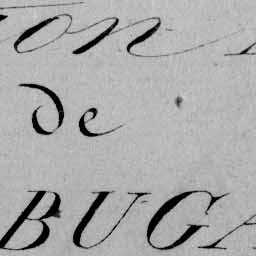 on
de
BUGA